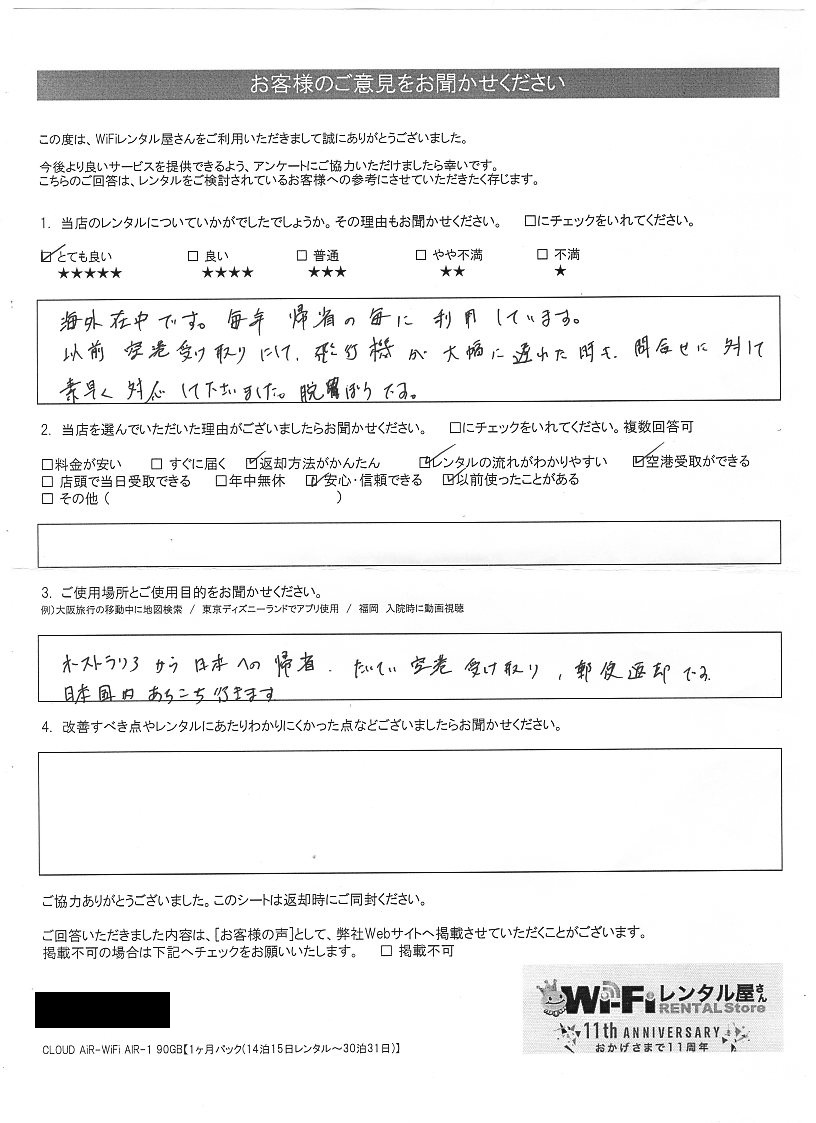 お客様のご意見をお聞かせください
この度は、WiFiレンタル屋さんをご利用いただきまして誠にありがとうございました。
今後より良いサービスを提供できるよう、アンケートにご協力いただけましたら幸いです。
こちらのご回答は、レンタルをご検討されているお客様への参考にさせていただきたく存じます。
1. 当店のレンタルについていかがでしたでしょうか。その理由もお聞かせください。 □にチェックをいれてください。
☑とても良い □ 良い □ 普通 □ やや不満 □ 不満
★★★★★ ★★★★ ★★★ ★★ ★
海外在中です。毎年 帰省の毎に 利用しています。
以前 空港受け取りにして、飛行機が大幅に遅れた時も、問合せに対して
素早く対応して下さいました。脱帽ぼうです。
2. 当店を選んでいただいた理由がございましたらお聞かせください。 □にチェックをいれてください。複数回答可
□料金が安い □ すぐに届く ☑返却方法がかんたん ☑レンタルの流れがわかりやすい ☑空港受取ができる
□ 店頭で当日受取できる □年中無休 ☑安心・信頼できる ☑以前使ったことがある
□ その他 ( )
3. ご使用場所とご使用目的をお聞かせください。
例)大阪旅行の移動中に地図検索 / 東京ディズニーランドでアプリ使用 / 福岡 入院時に動画視聴
オーストラリアから日本への帰省. だいたい空港受け取り, 郵便返却です.
日本国内あちこち行きます
4. 改善すべき点やレンタルにあたりわかりにくかった点などございましたらお聞かせください。
ご協力ありがとうございました。このシートは返却時にご同封ください。
ご回答いただきました内容は、[お客様の声]として、弊社Webサイトへ掲載させていただくことがございます。
掲載不可の場合は下記へチェックをお願いいたします。 □ 掲載不可
Wi-Fiレンタル屋さん
RENTAL Store
11th ANNIVERSARY
おかげさまで11周年
CLOUD AiR-WiFi AIR-1 90GB【1ヶ月パック(14泊15日レンタル～30泊31日)】